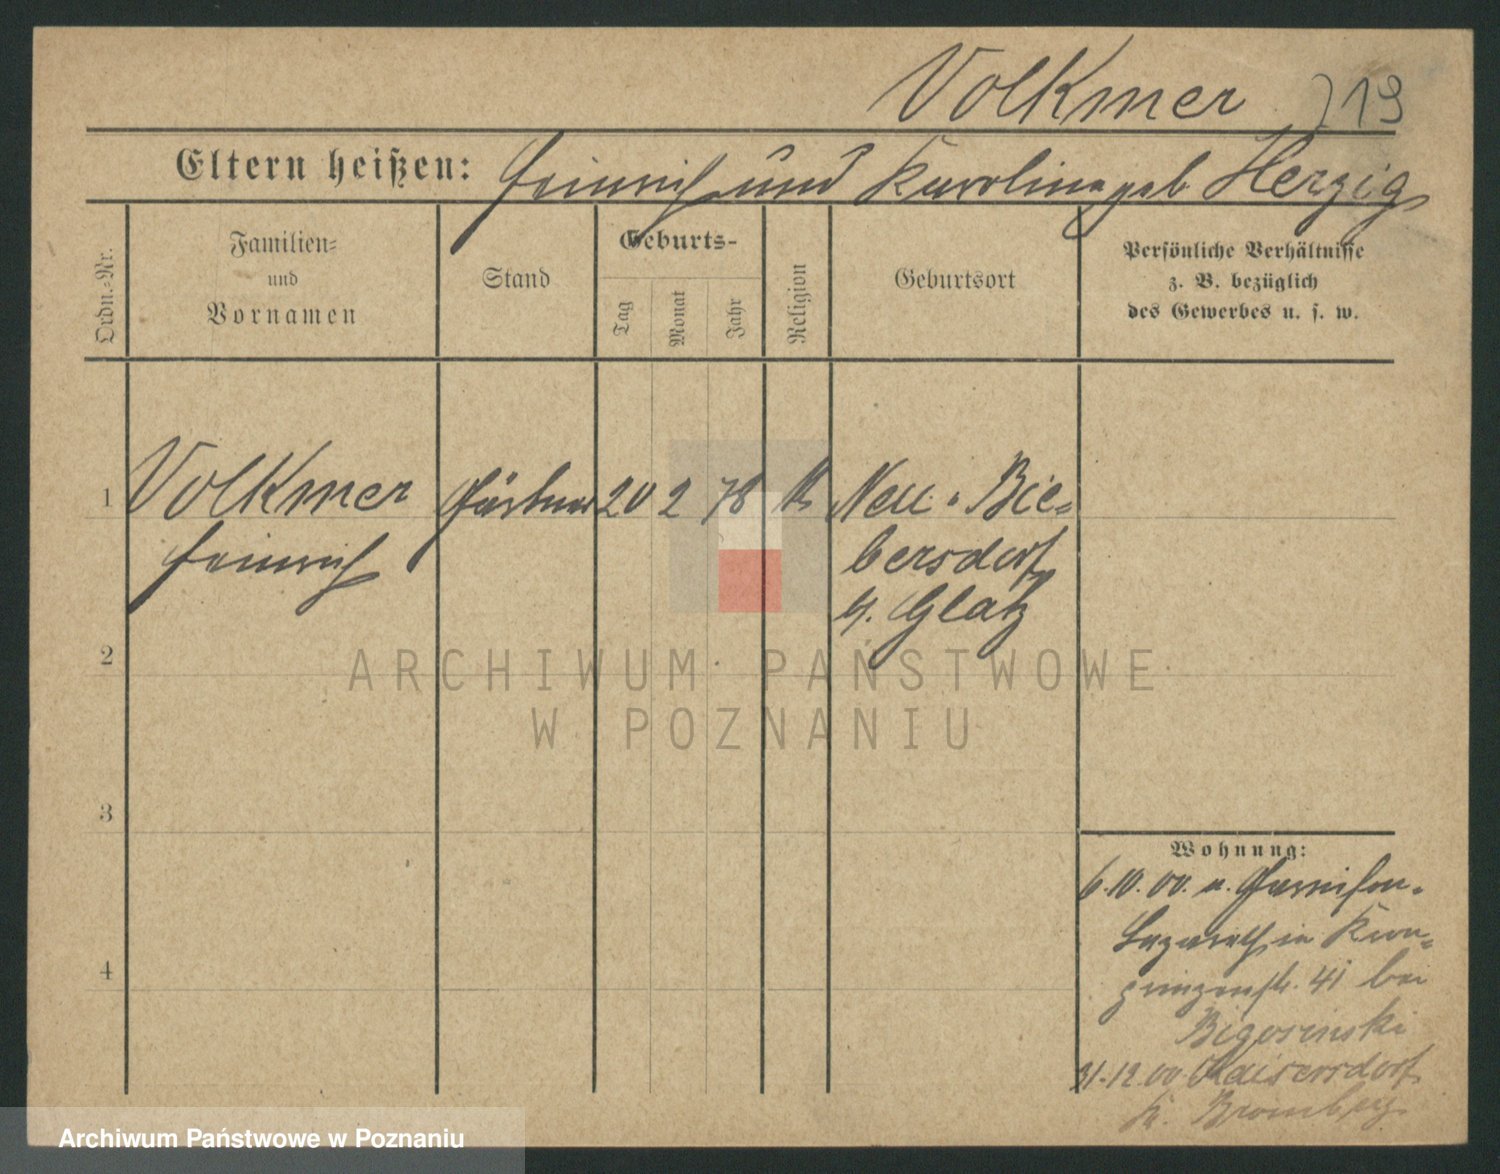 Volkmer 719
Eltern heißen: Heinrich und Karoline geb Herzig
Ordn.-Nr.
Familien-
und
Vornamen
Stand
Geburts-
Tag
Monat
Jahr
Religion
Geburtsort
Persönliche Verhältnisse
z. B. bezüglich
des Gewerbes u. s. w.
1 Volkmer Gärtner 20 2 78 k Neu-Bie-
Heinrich bersdorf
Glatz
2
3
4
Wohnung:
6.10.00. a. Garnison-
Lazareth in Kron-
prinzenstr. 41 bei
Bigosinski
31.12.00 Kaisersdorf
Kr. Bromberg
ARCHIWUM PAŃSTWOWE
W POZNANIU
Archiwum Państwowe w Poznaniu